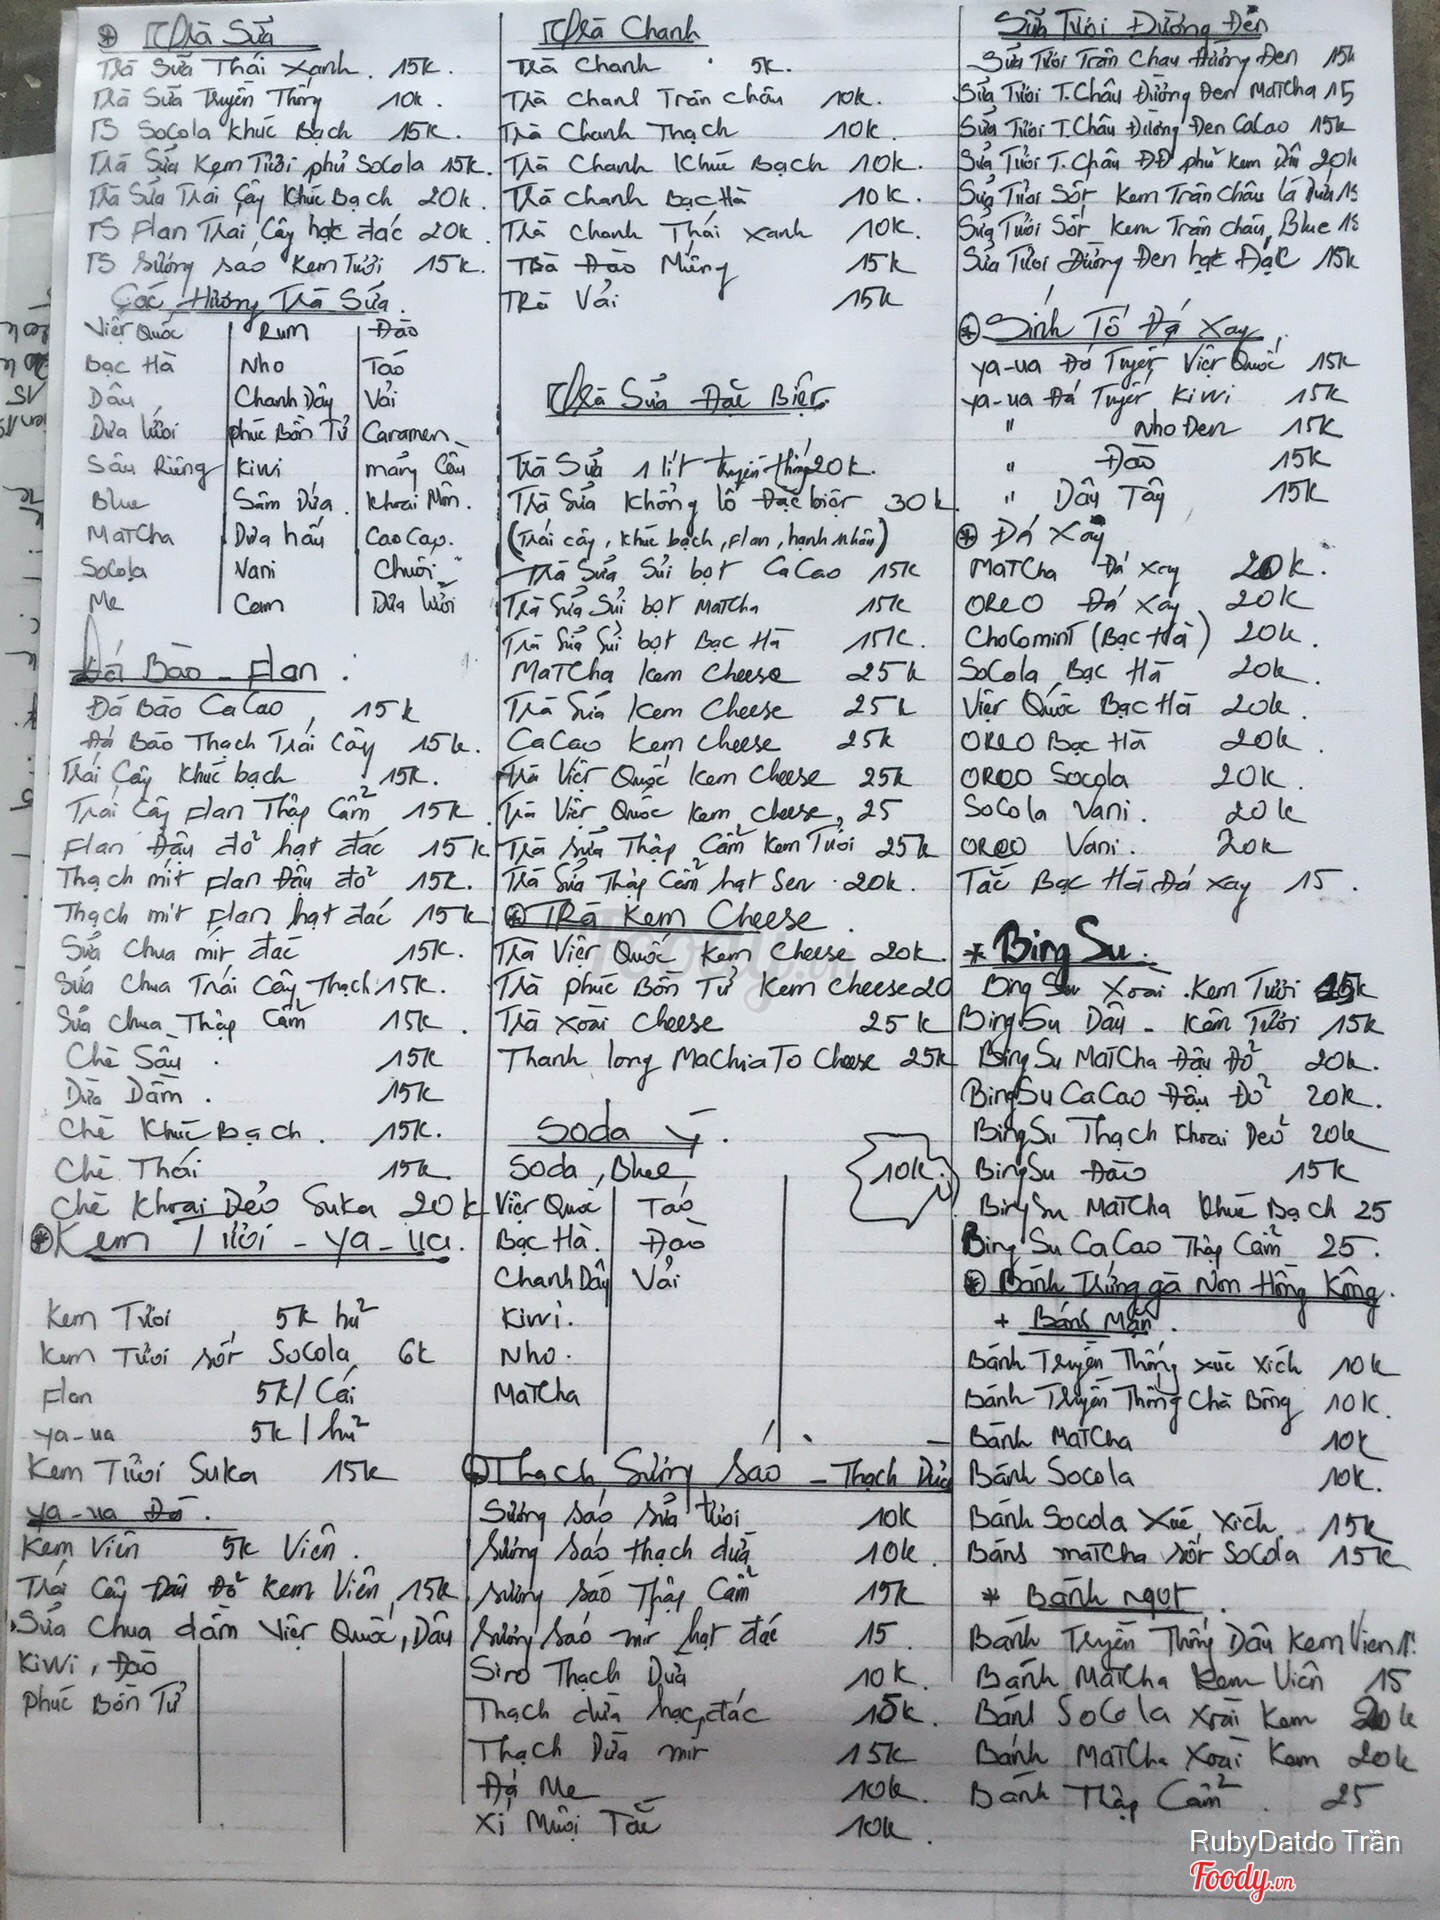 Trà Sữa
Trà Sữa Thái Xanh. 15k.
Trà Sữa Truyền Thống 10k.
TS Socola Khúc Bạch 15k.
Trà Sữa Kem Tươi phủ Socola 15k.
Trà Sữa Trái Cây Khúc Bạch 20k.
TS Flan Trái Cây hạt đác 20k.
TS Sương sáo Kem Tươi 15k.
Các Hương Trà Sữa.
Việt Quốc Rum Đào
Bạc Hà Nho Táo
Dâu Chanh Dây Vải
Dưa lưới phúc Bồn Tử Caramen
Sầu Riêng Kiwi mãng Cầu
Blue Sâm Dứa. Khoai Môn.
MaTCha Dưa hấu CaoCao.
Socola Vani Chuối
Me Cam Dưa lưới
Đá Bào - Flan
Đá Bào CaCao 15k
Đá Bào Thạch Trái Cây 15k.
Trái Cây Khúc bạch 15k.
Trái Cây Flan Thập Cẩm 15k
Flan Đậu đỏ hạt đác 15k
Thạch mít flan Đậu đỏ 15k.
Thạch mít flan hạt đác 15k
Sữa Chua mít đác 15k.
Sữa Chua Trái Cây Thạch 15k.
Sữa Chua Thập Cẩm 15k.
Chè Sầu 15k
Dừa Dầm. 15k
Chè Khúc Bạch. 15k.
Chè Thái 15k.
Chè Khoai Dẻo Suka 20k
Kem Tươi - ya-ua.
Kem Tươi 5k hủ
Kem Tươi sốt Socola 6k
Flan 5k/Cái
ya-ua 5k/hủ
Kem Tươi Suka 15k
ya-ua Đá.
Kem Viên 5k Viên.
Trái Cây Đậu Đỏ Kem Viên 15k
Sữa Chua dầm Việt Quốc, Dâu
Kiwi, Đào
Phúc Bồn Tử
Trà Chanh
Trà Chanh 5k.
Trà Chanh Trân Châu 10k.
Trà Chanh Thạch 10k.
Trà Chanh Khúc Bạch 10k.
Trà Chanh Bạc Hà 10k.
Trà Chanh Thái Xanh 10k.
Trà Đào Miếng 15k
Trà Vải 15k
Trà Sữa Đặc Biệt
Trà Sữa 1 lít truyền thống 20k.
Trà Sữa Khổng lồ Đặc biệt 30k
(Trái cây, Khúc bạch, Flan, hạnh nhân)
Trà Sữa Sủi bọt CaCao 15k
Trà Sữa Sủi bọt Matcha 15k.
Trà Sữa Sủi bọt Bạc Hà 15k.
MaTCha Kem Cheese 25k
Trà Sữa Kem Cheese 25k
CaCao Kem Cheese 25k
Trà Việt Quốc Kem Cheese 25k
Trà Việt Quốc Kem Cheese 25
Trà sữa Thập Cẩm Kem Tươi 25k
Trà Sữa Thập Cẩm hạt Sen 20k.
Trà Kem Cheese
Trà Việt Quốc Kem Cheese 20k.
Trà phúc Bồn Tử Kem Cheese 20
Trà Xoài Cheese 25k
Thanh long MaChiaTo Cheese 25k
Soda Ý.
Soda Blue 10k.
Việt Quốc Táo
Bạc Hà. Đào
Chanh Dây Vải
Kiwi.
Nho.
MaTCha
Thạch Sương Sáo - Thạch Dừa
Sương sáo sữa tươi 10k
Sương sáo thạch dừa 10k.
Sương sáo Thập Cẩm 15k
Sương sáo mít hạt đác 15
Siro Thạch Dừa 10k.
Thạch dừa hạt đác 15k.
Thạch Dừa mít 15k
Đá Me 10k.
Xí Muội Tắc 10k.
Sữa Tươi Đường Đen
Sữa Tươi Trân Châu Đường Đen 15k
Sữa Tươi T.Châu Đường Đen Matcha 15
Sữa Tươi T.Châu Đường Đen CaCao 15k
Sữa Tươi T.Châu ĐĐ phủ Kem Dâu 20k
Sữa Tươi Sốt Kem Trân Châu lá Dứa 15
Sữa Tươi Sốt Kem Trân Châu Blue 15
Sữa Tươi Đường Đen hạt Đác 15k
Sinh Tố Đá Xay
ya-ua Đá Tuyết Việt Quốc 15k
ya-ua Đá Tuyết Kiwi 15k
" Nho Đen 15k
" Đào 15k
" Dâu Tây 15k
Đá Xay
MaTCha Đá Xay 20k.
OREO Đá Xay 20k
ChoComint (Bạc Hà) 20k.
SoCola Bạc Hà 20k.
Việt Quốc Bạc Hà 20k.
OREO Bạc Hà 20k.
OREO Socola 20k.
SoCola Vani. 20k
OREO Vani. 20k
Tắc Bạc Hà Đá Xay 15.
* Bing Su.
Bing Su Xoài Kem Tươi 15k
Bing Su Dâu - Kem Tươi 15k
Bing Su MaTCha Đậu Đỏ 20k.
Bing Su CaCao Đậu Đỏ 20k.
Bing Su Thạch Khoai Dẻo 20k
Bing Su Đào 15k
Bing Su MaTCha Khúc Bạch 25
Bing Su CaCao Thập Cẩm 25.
Bánh Trứng gà Non Hồng Kông.
+ Bánh Mặn.
Bánh Truyền Thống xúc xích 10k
Bánh Truyền Thống Chà Bông 10k.
Bánh MaTCha 10k
Bánh Socola 10k.
Bánh Socola Xúc Xích 15k
Bánh maTCha sốt Socola 15k
* Bánh ngọt.
Bánh Truyền Thống Dâu Kem Viên
Bánh MaTCha Kem Viên 15
Bánh SoCola Xoài Kem 20k
Bánh MaTCha Xoài Kem 20k
Bánh Thập Cẩm. 25
RubyDatdo Trần
Foody.vn